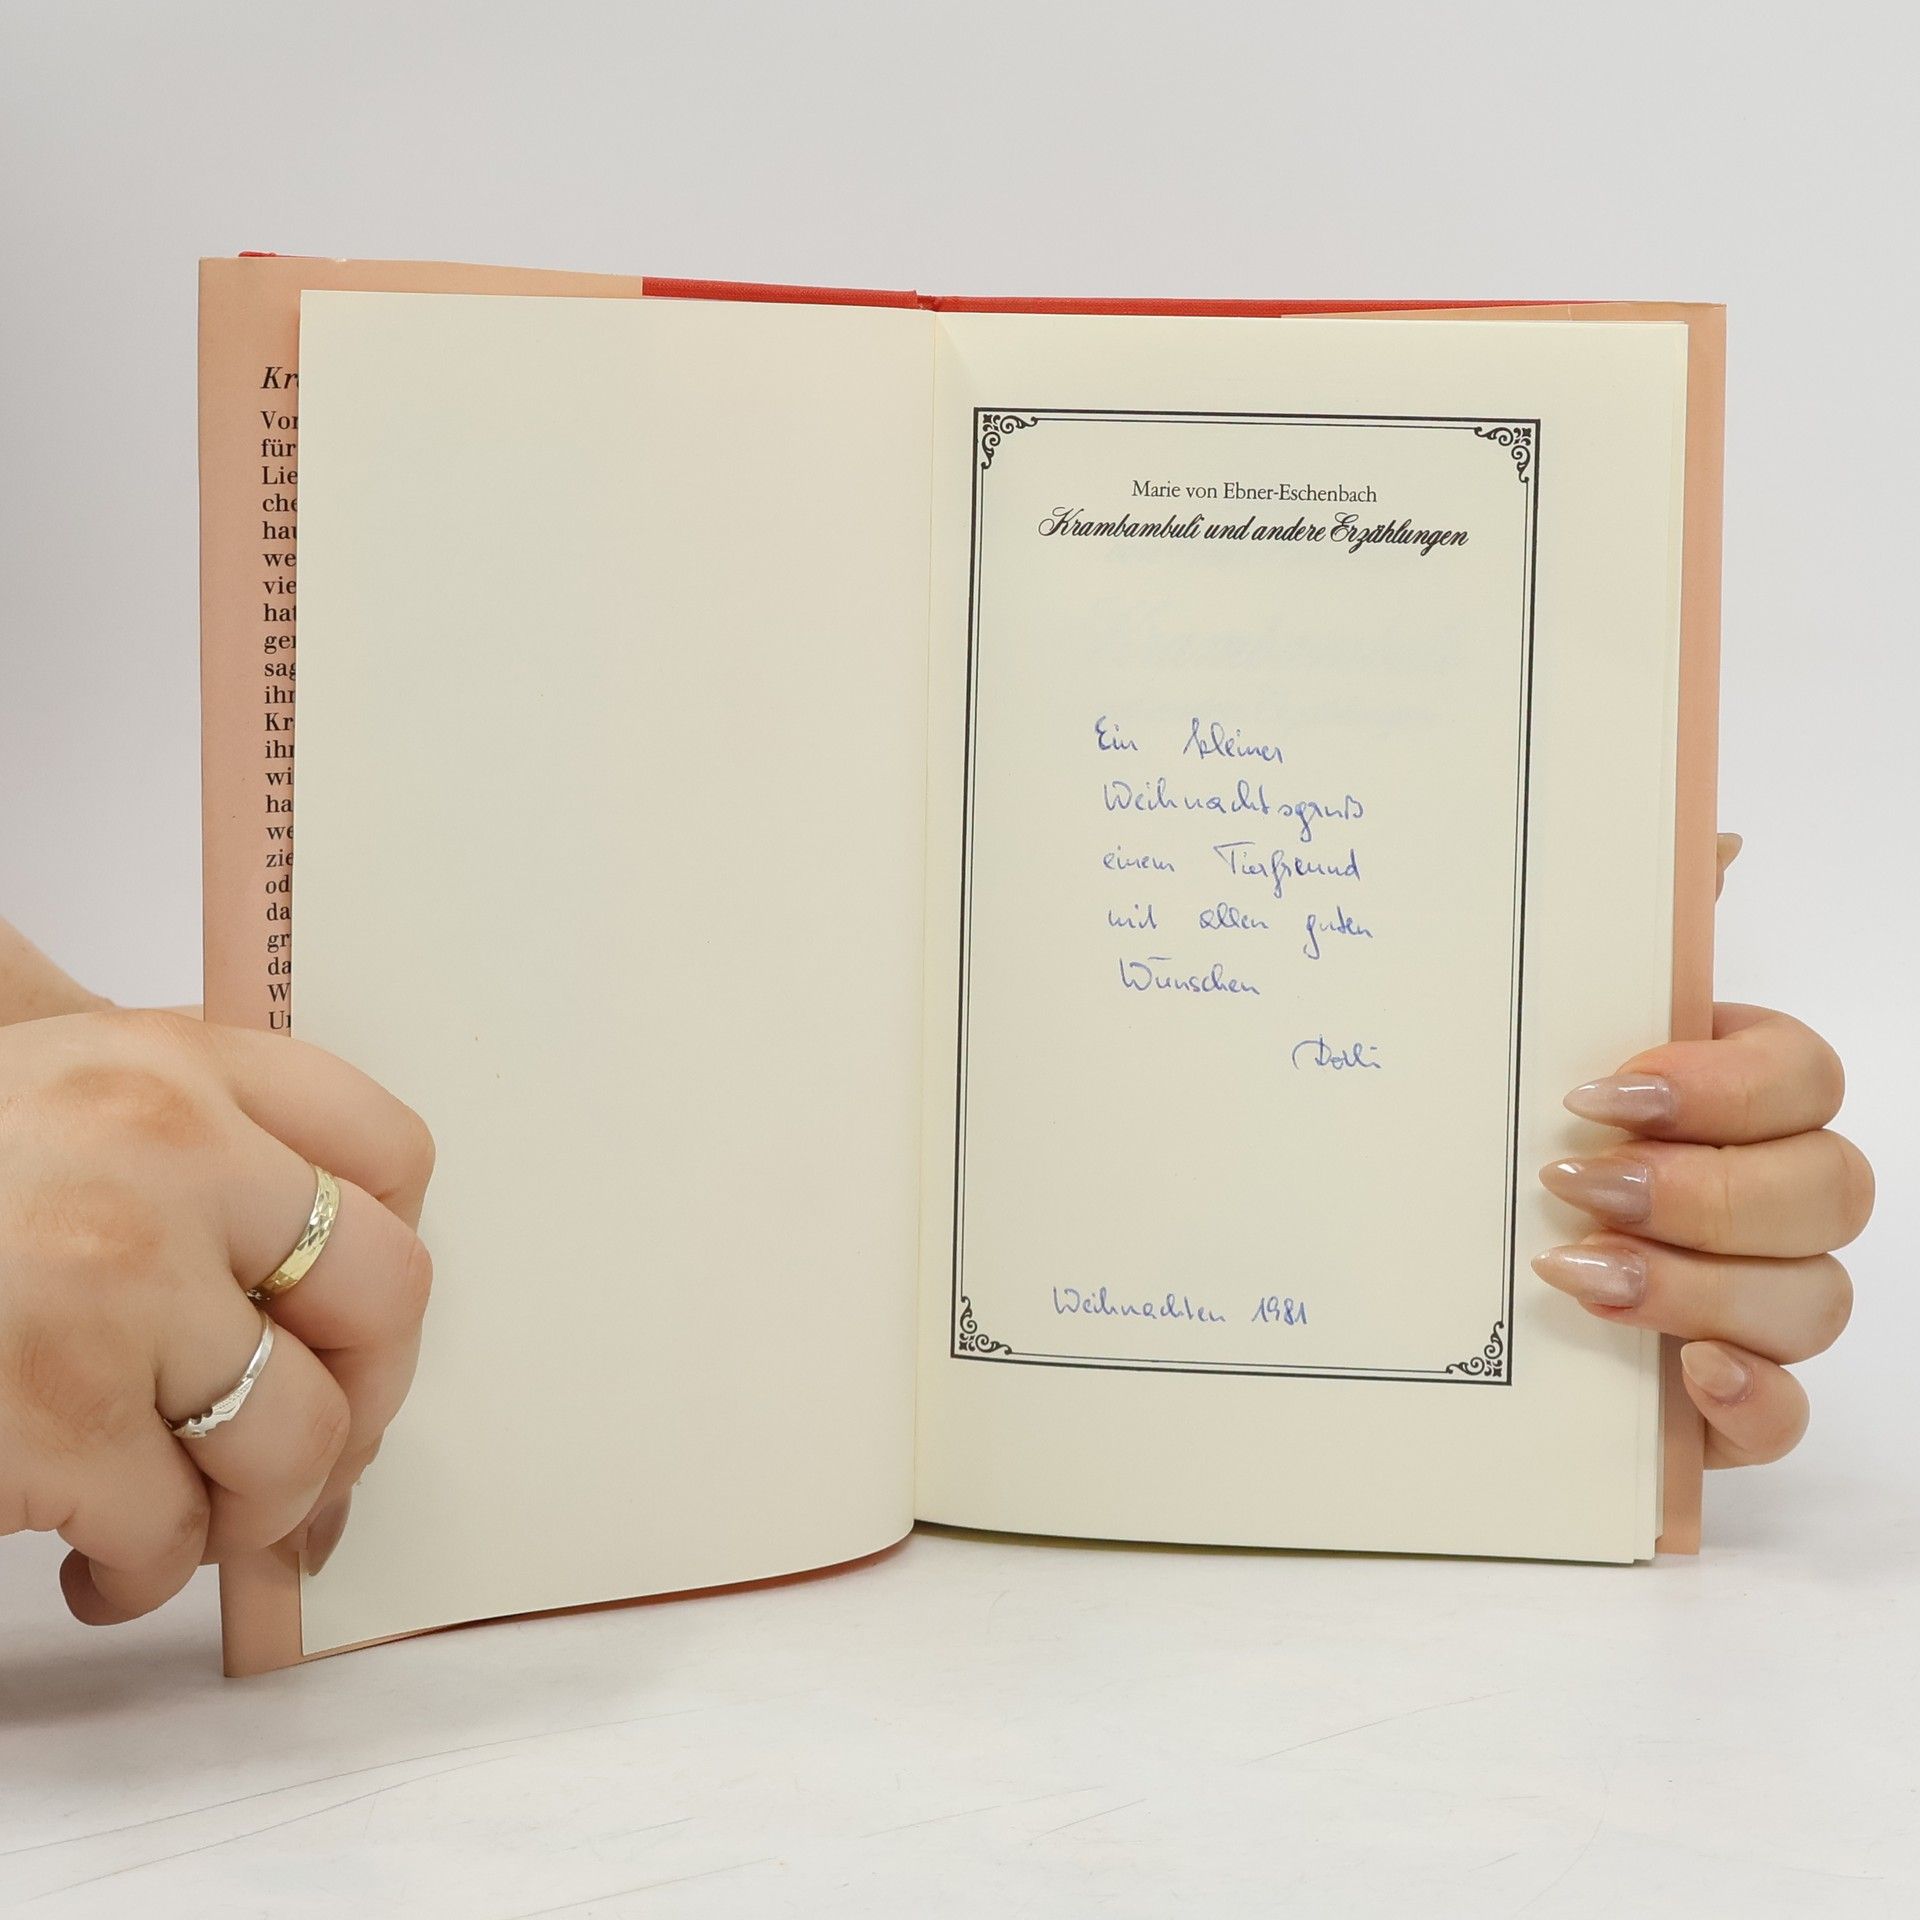 Kr
Vor
für
Lie
che
hau
we
vie
hat
ger
sag
ihr
Kr
ihr
wi
ha
we
zie
od
da
gr
da
W
Un
Marie von Ebner-Eschenbach
Krambambuli und andere Erzählungen
Ein kleiner
Weihnachtsgruß
einem Tierfreund
mit allen guten
Wünschen
Weihnachten 1981